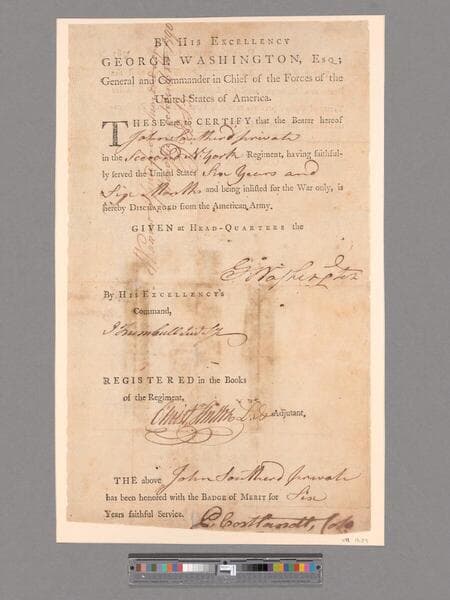 BY HIS EXCELLENCY
GEORGE WASHINGTON, ESQ;
General and Commander in Chief of the Forces of the
United States of America.
THESE are to CERTIFY that the Bearer hereof
John private
in the Second N York Regiment, having faithful-
ly served the United States Six Years and
Six Months and being inlisted for the War only, is
hereby DISCHARGED from the American Army.
GIVEN at HEAD-QUARTERS the
G Washington
BY HIS EXCELLENCY'S
Command,
J Trumbull
REGISTERED in the Books
of the Regiment,
Adjutant,
THE above John Southerd private
has been honored with the BADGE of MERIT for Six
Years faithful Service. P. Cortlandt, Colo